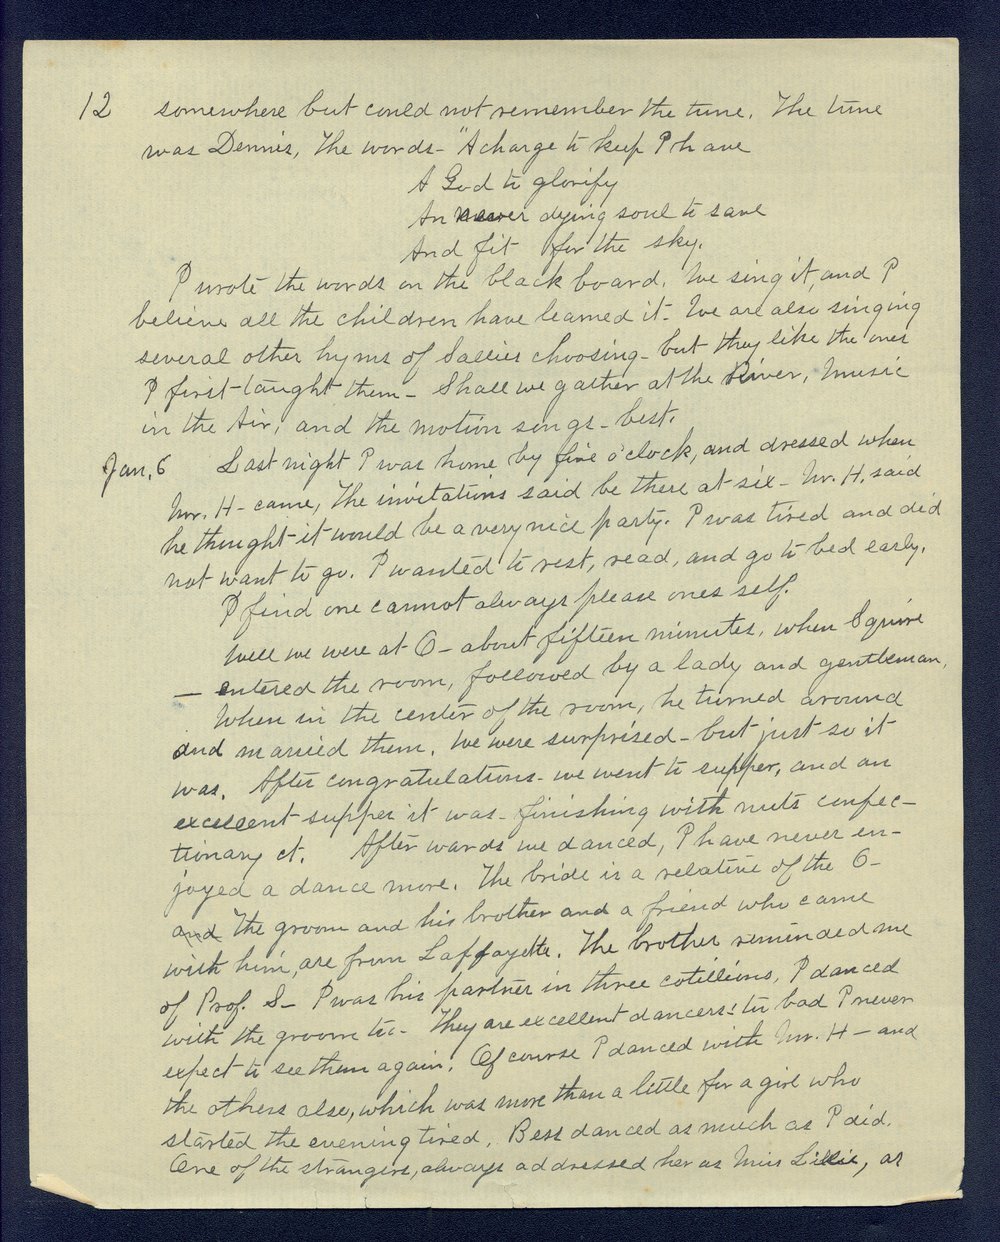 12 somewhere but could not remember the tune. The tune
was Dennis, The words - "A charge to keep I have
A God to glorify
An never dying soul to save
And fit for the sky.
I wrote the words on the black board. We sing it, and I
believe all the children have learned it. We are also singing
several other hyms of Sallies choosing - but they like the ones
I first taught them - Shall we gather at the River, Music
in the Air, and the motion songs - best.
Jan. 6 Last night I was home by five o'clock, and dressed when
Mr. H - came, The invitations said be there at six - Mr. H. said
he thought it would be a very nice party. I was tired and did
not want to go. I wanted to rest, read, and go to bed early.
I find one cannot always please ones self.
Well we were at O - about fifteen minutes, when Squire
— entered the room, followed by a lady and gentleman,
When in the center of the room, he turned around
and married them. We were surprised - but just so it
was. After congratulations - we went to supper, and an
excellent supper it was - finishing with nuts confec-
tionary ct. After wards we danced, I have never en-
joyed a dance more. The bride is a relative of the O -
and The groom and his brother and a friend who came
with him, are from Laffayette. The brother reminded me
of Prof. S - I was his partner in three cotillions, I danced
with the groom to - They are excellent dancers! to bad I never
expect to see them again. Of course I danced with Mr. H - and
the others also, which was more than a little for a girl who
started the evening tired. Bess danced as much as I did.
One of the strangers, always addressed her as Miss Lillie, as